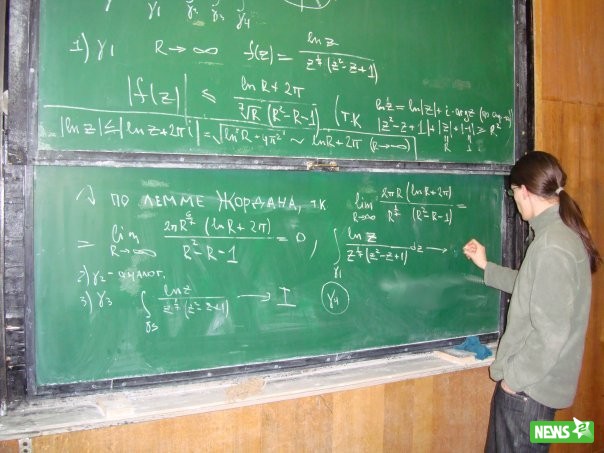 γ₁ γ₂ γ₃ γ₄
1) γ₁ R → ∞ f(z) = ln z / z^{1/7} (z²-z+1)
|f(z)| ≤ ln R + 2π / ⁷√R (R²-R-1) (т.к. ln z = ln|z| + i·arg z
|z²-z+1| + |z| + |-1| ≥ R²
|ln z| ≤ |ln z + 2πi| = √ln²R + 4π² ~ ln R + 2π (R → ∞)
R 1
по лемме Жордана, т.к. lim R→∞ 2πR (ln R + 2π) / R^{1/7} (R²-R-1) =
= lim R→∞ 2πR^{6/7} (ln R + 2π) / R²-R-1 = 0, ∫γ₁ ln z / z^{1/7} (z²-z+1) dz →
2) γ₂ - аналог.
3) γ₃ ∫γ₃ ln z / z^{1/7} (z²-z+1) → I γ₄
NEWS